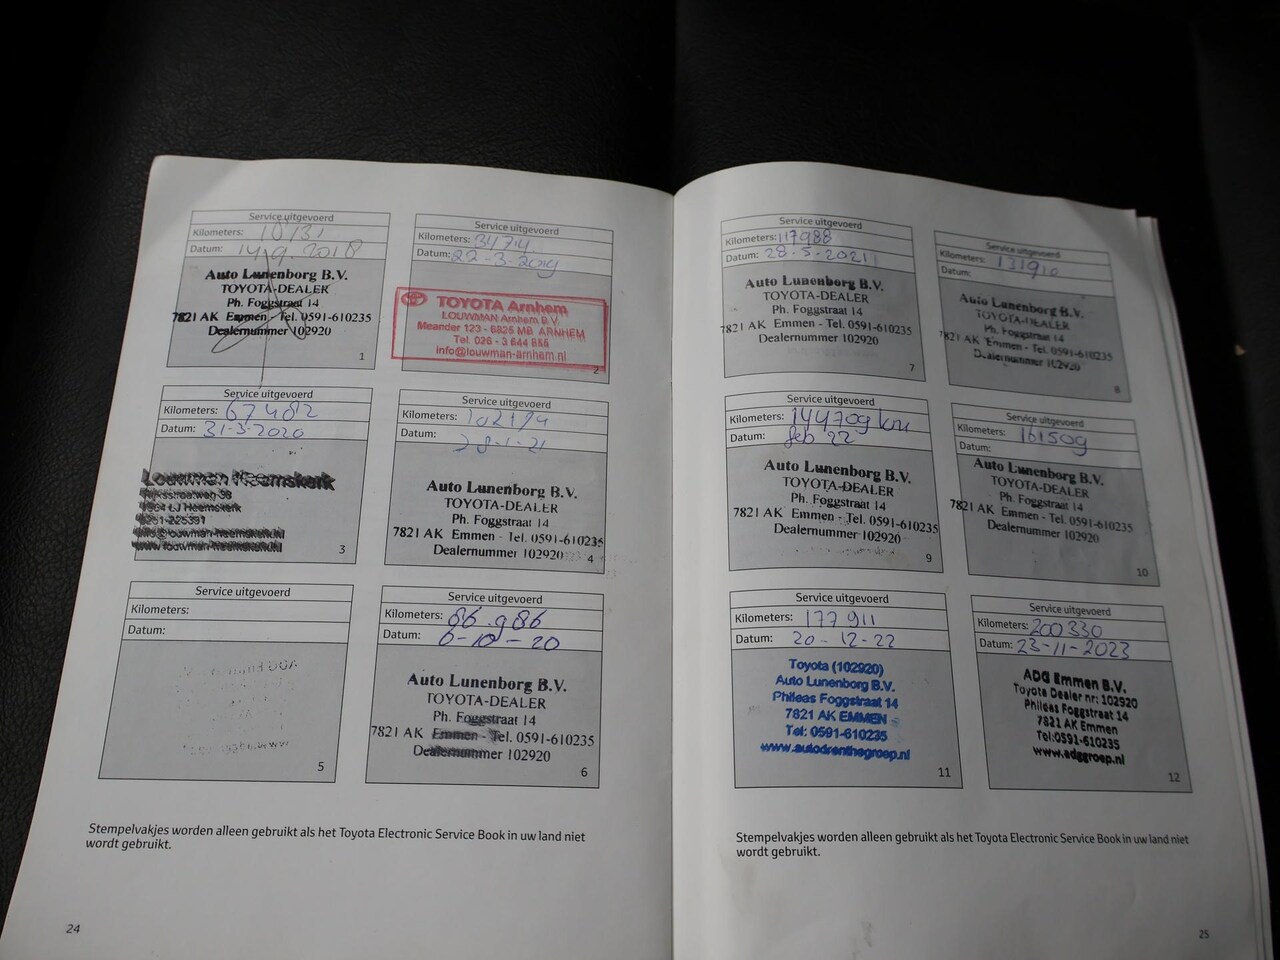 Service uitgevoerd
Kilometers: 10131
Datum: 14.9.2018
Auto Lunenborg B.V.
TOYOTA-DEALER
Ph. Foggstraat 14
7821 AK Emmen - Tel. 0591-610235
Dealernummer 102920
1
Service uitgevoerd
Kilometers: 34714
Datum: 22-3-2019
TOYOTA Arnhem
LOUWMAN Arnhem B.V.
Meander 123 - 6825 MB ARNHEM
Tel. 026 - 3 644 666
info@louwman-arnhem.nl
2
Service uitgevoerd
Kilometers: 67482
Datum: 31-3-2020
Louwman Heemskerk
Rijksstraatweg 98
1964 LJ Heemskerk
0251-225391
info@louwman-heemskerk.nl
www.louwman-heemskerk.nl
3
Service uitgevoerd
Kilometers:
Datum: 28-1-21
Auto Lunenborg B.V.
TOYOTA-DEALER
Ph. Foggstraat 14
7821 AK Emmen - Tel. 0591-610235
Dealernummer 102920
4
Service uitgevoerd
Kilometers:
Datum:
5
Service uitgevoerd
Kilometers: 86.986
Datum: 6-10-20
Auto Lunenborg B.V.
TOYOTA-DEALER
Ph. Foggstraat 14
7821 AK Emmen - Tel. 0591-610235
Dealernummer 102920
6
Stempelvakjes worden alleen gebruikt als het Toyota Electronic Service Book in uw land niet
wordt gebruikt.
24
Service uitgevoerd
Kilometers: 117988
Datum: 28-5-2021
Auto Lunenborg B.V.
TOYOTA-DEALER
Ph. Foggstraat 14
7821 AK Emmen - Tel. 0591-610235
Dealernummer 102920
7
Service uitgevoerd
Kilometers: 131910
Datum:
Auto Lunenborg B.V.
TOYOTA-DEALER
Ph. Foggstraat 14
7821 AK Emmen - Tel. 0591-610235
Dealernummer 102920
8
Service uitgevoerd
Kilometers: 144709 km
Datum: feb 22
Auto Lunenborg B.V.
TOYOTA-DEALER
Ph. Foggstraat 14
7821 AK Emmen - Tel. 0591-610235
Dealernummer 102920
9
Service uitgevoerd
Kilometers: 161509
Datum:
Auto Lunenborg B.V.
TOYOTA-DEALER
Ph. Foggstraat 14
7821 AK Emmen - Tel. 0591-610235
Dealernummer 102920
10
Service uitgevoerd
Kilometers: 177911
Datum: 20-12-22
Toyota (102920)
Auto Lunenborg B.V.
Phileas Foggstraat 14
7821 AK EMMEN
Tel: 0591-610235
www.autodrenthegroep.nl
11
Service uitgevoerd
Kilometers: 200330
Datum: 23-11-2023
ADG Emmen B.V.
Toyota Dealer nr: 102920
Phileas Foggstraat 14
7821 AK Emmen
Tel:0591-610235
www.adggroep.nl
12
Stempelvakjes worden alleen gebruikt als het Toyota Electronic Service Book in uw land niet
wordt gebruikt.
25